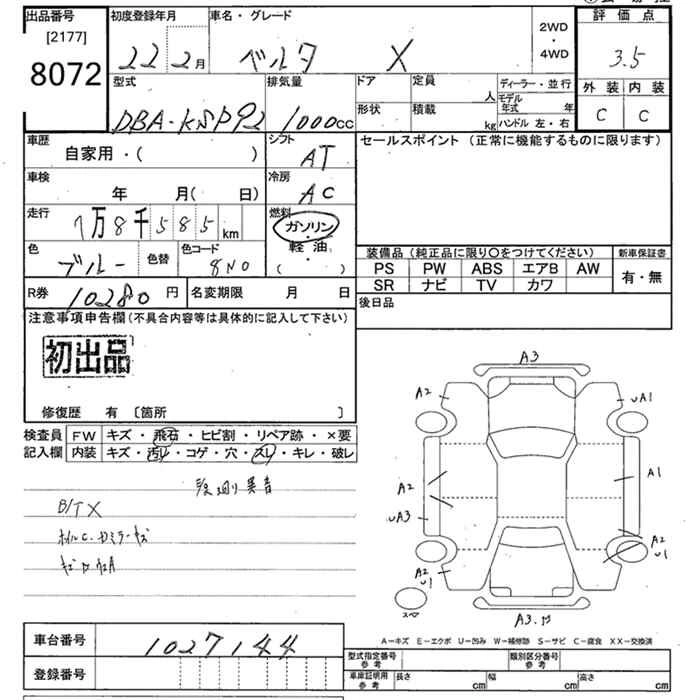 出品番号 [2177] 8072
初度登録年月 22 2月
車名・グレード ベルタ X
2WD・4WD
評価点 3.5
外装 C 内装 C
型式 DBA-KSP92
排気量 1000cc
ドア 形状
定員 人
積載 kg
ディーラー・並行
モデル年式 年
ハンドル 左・右
車歴 自家用・( )
シフト AT
セールスポイント (正常に機能するものに限ります)
車検 年 月( 日)
冷房 AC
走行 7万8千585km
燃料 ガソリン・軽油・( )
色 ブルー 色替 色コード 8N0
装備品 (純正品に限り○をつけてください)
新車保証書 有・無
PS PW ABS エアB AW
SR ナビ TV カワ
R券 10280円
名変期限 月 日
後日品
注意事項申告欄 (不具合内容等は具体的に記入して下さい)
初出品
修復歴 有 〔箇所 〕
検査員記入欄
FW キズ・飛石・ヒビ割・リペア跡・×要
内装 キズ・汚レ・コゲ・穴・スレ・キレ・破レ
異音
B/TX
A3
A2
UA1
A2
A1
UA3
A2
U1
A2
U1
スペ
A3.
A-キズ E-エクボ U-凹み W-補修跡 S-サビ C-腐食 XX-交換済
車台番号 1027144
登録番号
型式指定番号 参考
類別区分番号 参考
車庫証明用 参考 長さ cm 幅 cm 高さ cm